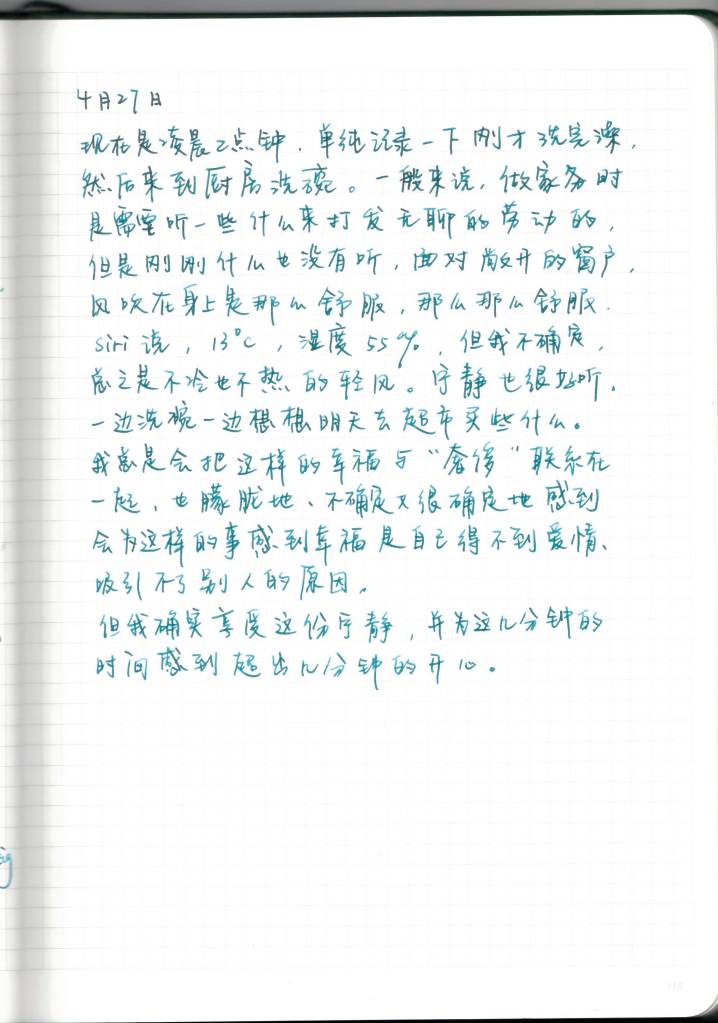 4月27日
现在是凌晨2点钟，单纯记录一下刚才洗完澡，
然后来到厨房洗碗。一般来说，做家务时
是需要听一些什么来打发无聊的劳动的，
但是刚刚什么也没有听，面对敞开的窗户，
风吹在身上是那么舒服，那么那么舒服.
siri 说，13°C，湿度55%，但我不确定，
总之是不冷也不热的轻风。宁静也很好听，
一边洗碗一边想想明天去超市买些什么。
我总是会把这样的幸福与“奢侈”联系在
一起，也朦胧地、不确定又很确定地感到
会为这样的事感到幸福是自己得不到爱情、
吸引不了别人的原因。
但我确实享受这份宁静，并为这几分钟的
时间感到超出几分钟的开心。
115